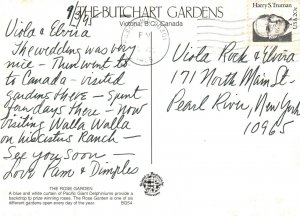 THE BUTCHART GARDENS
Victoria, B.C., Canada
Harry S. Truman
USA 20c
Viola & Elvira
The wedding was very
nice - Then went to
to Canada - visited
gardens there - spent
few days there - now
visiting Walla Walla
on his Ranch -
See you soon -
Love Pam & Dimples
Viola Rock & Elvira
171 North Main St.
Pearl River, New York
10965
THE ROSE GARDEN
A blue and white curtain of Pacific Giant Delphiniums provides a
backdrop to prize winning roses. The Rose Garden is one of six
different gardens open every day of the year.